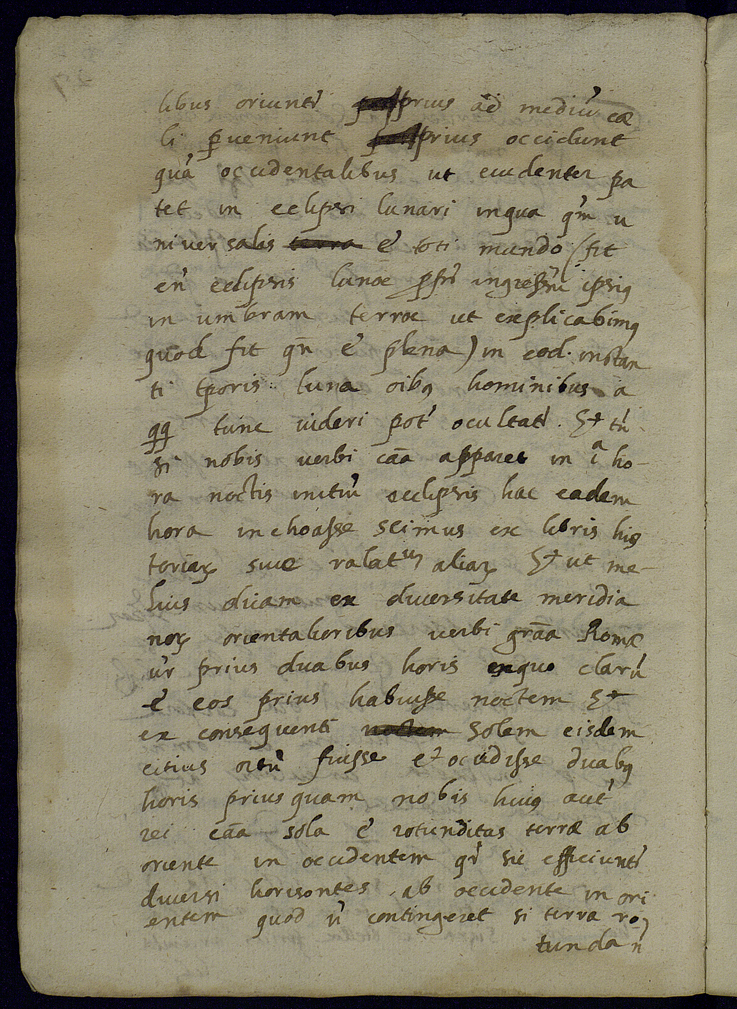 libus oriunt' prius ad mediū cæ
li pueniunt prius occidunt
quā occidentalibus ut euidenter pa
tet in eclipsi lunari inqua qm u
niversalis terra ē toti mundo (fit
en eclipsis lunæ ingressū ipsiq
in umbram terræ ut explicabimq
quod fit qn ē plena) in eod. instan
ti tporis luna oibq hominibus a
qq tunc uideri pot' ocultat'. Et tn
si nobis verbi cāa apparet in i^a ho-
ra noctis initiū ecclipsis hac eadem
hora inchoasse scimus ex libris his
toriaꝝ sive ralat^m aliaꝝ Et ut me-
lius dicam ex diversitate meridia
noꝝ orientalioribus verbi grāa Romæ
ur prius duabus horis exquo clarū
ē eos prius habuisse noctem Et
ex consequenti noctem Solem eisdem
citius ortū fuisse et occidisse duabq
horis priusquam nobis huiq aut'
rei cāa sola ē rotunditas terræ ab
oriente in occidentem qr sic efficiunt'
diversi horisontes ab occidente in ori
entem quod ñ contingeret si terra ro
tunda ñ